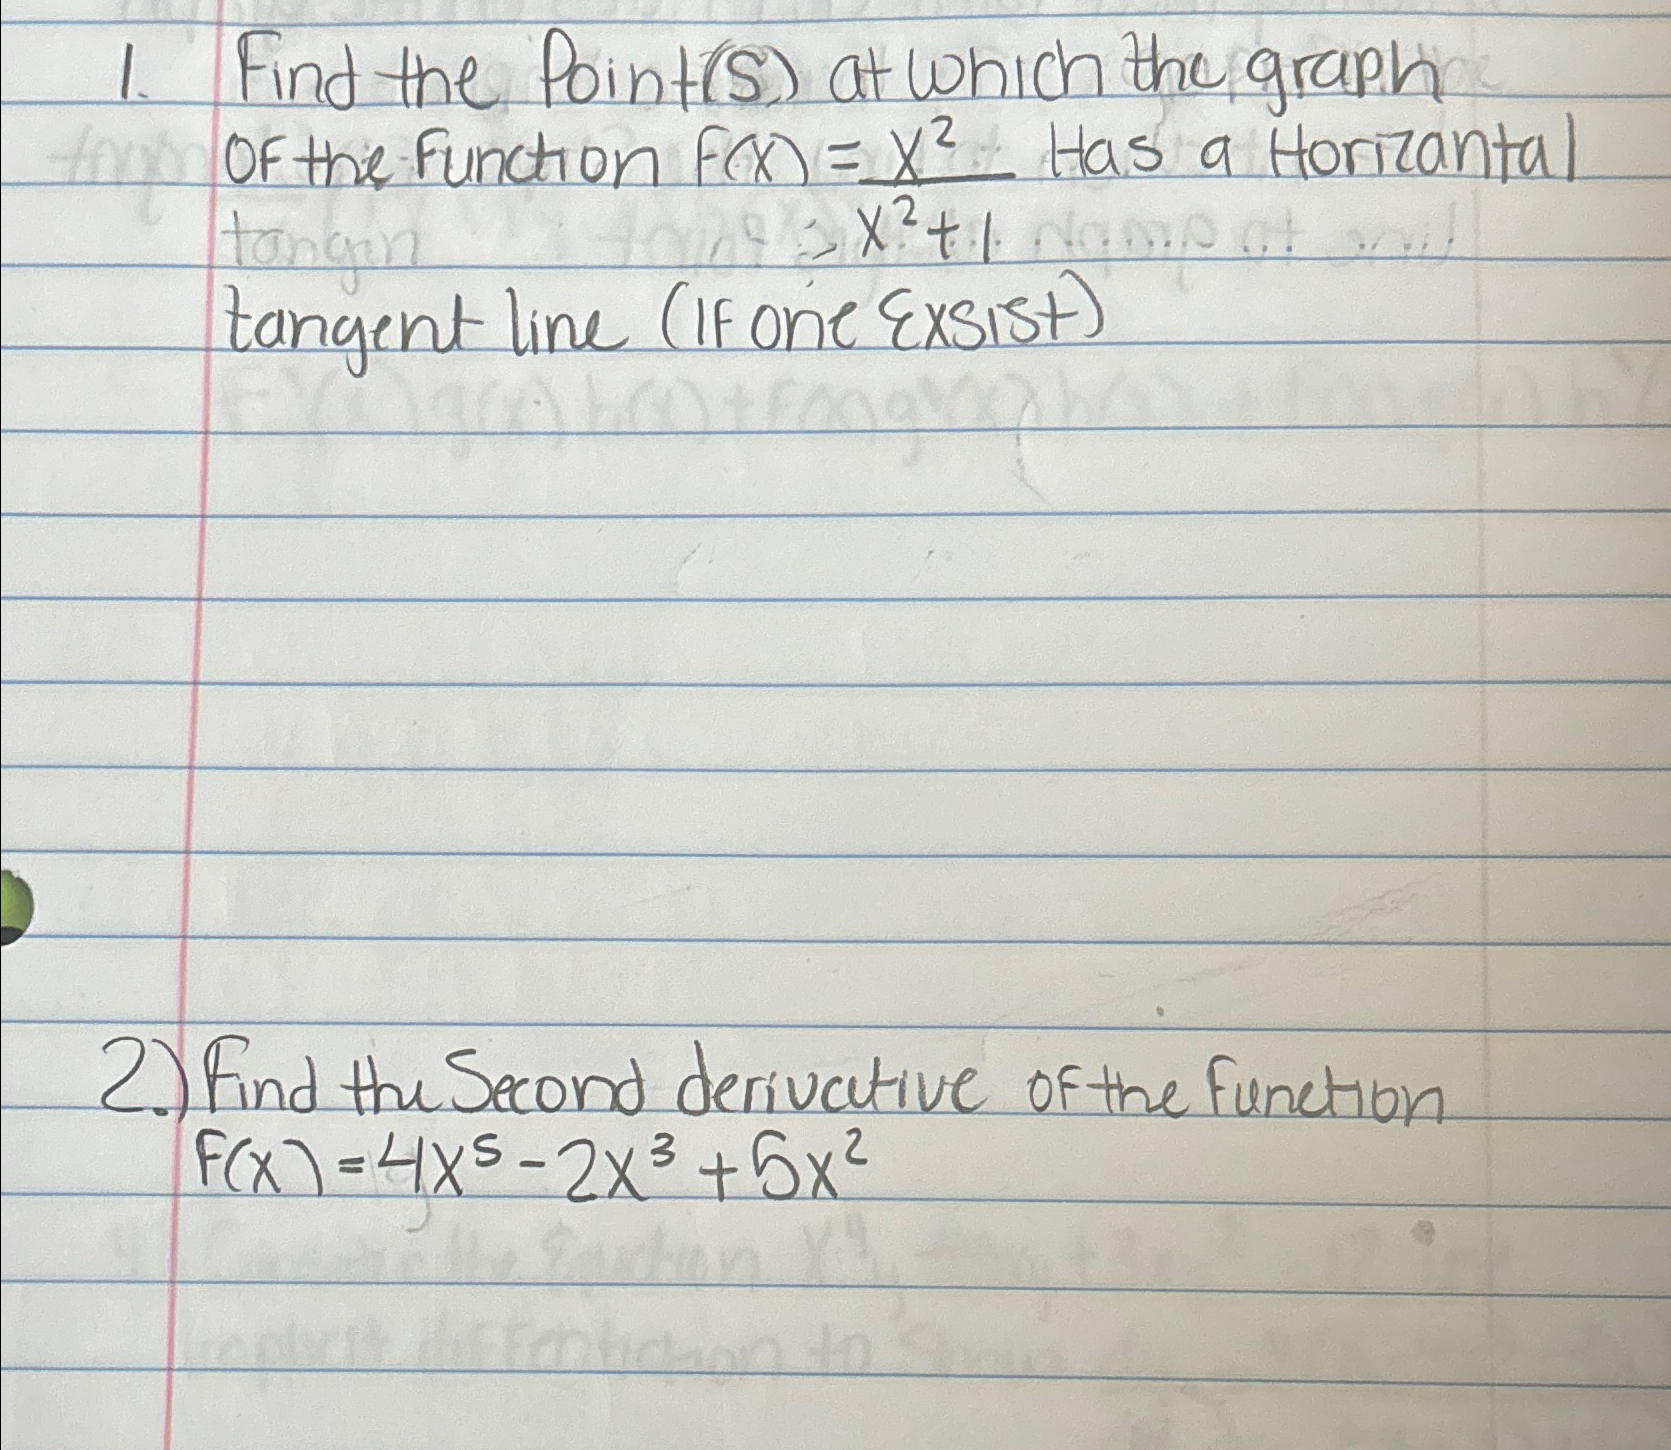 1. Find the Point(s) at which the graph
of the function f(x) = x²/(x²+1) Has a Horizantal
tangin
tangent line (If one Exsist)
2.) Find the Second derivative of the function
F(x) = 4x⁵ - 2x³ + 5x²